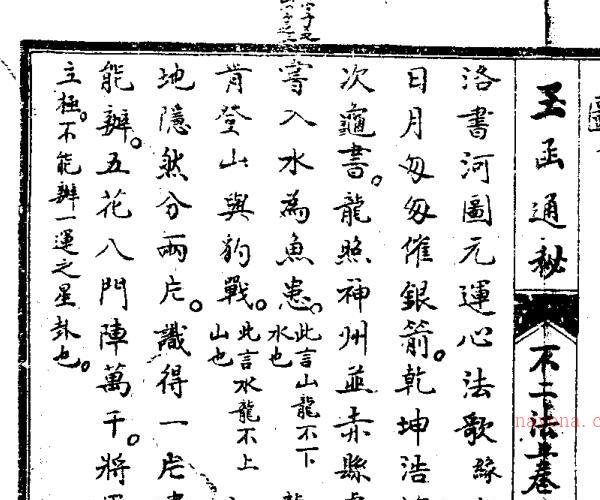 玉函通秘
不二法門卷
洛書河圖元運心法歌
日月匆匆催銀箭。乾坤浩
次龜書。龍照神州並赤縣
嘗入水為魚患。此言山龍不下
水也
肯登山與豹戰。此言水龍不上
山也
地隱然分兩片。識得一片
能辦。五花八門陣萬千。將
主極。不能辦一運之星卦也。
nayona.c